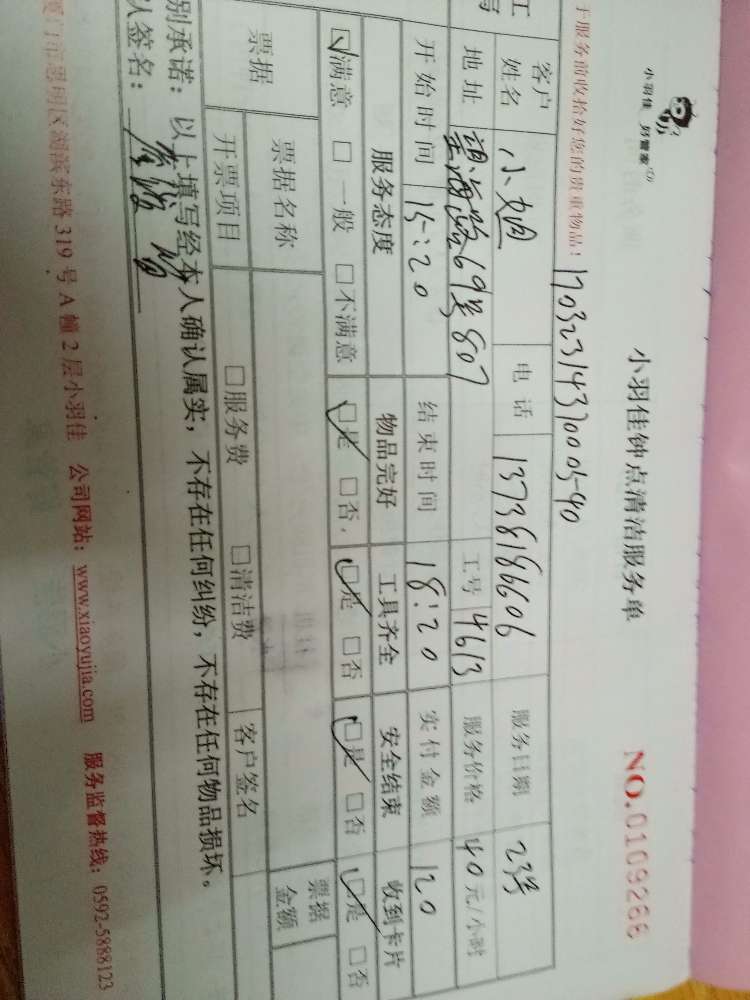 小羽佳 好管家
小羽佳钟点清洁服务单
NO.0109266
于服务前收拾好您的贵重物品!
1703231437000540
客户姓名 小姐 电话 13738186606 服务日期 23号
地址 望海路69号807 工号 4613 服务价格 40元/小时
开始时间 15:20 结束时间 18:20 实付金额 120
服务态度 物品完好 工具齐全 安全结束 收到卡片
☑满意 □一般 □不满意 ☑是 □否 ☑是 □否 ☑是 □否 ☑是 □否
票据 票据名称 票据金额
开票项目 □服务费 □清洁费 客户签名
别承诺:以上填写经本人确认属实,不存在任何纠纷,不存在任何物品损坏。
人签名:
厦门市思明区湖滨东路319号A幢2层小羽佳 公司网站:www.xiaoyujia.com 服务监督热线:0592-5888123